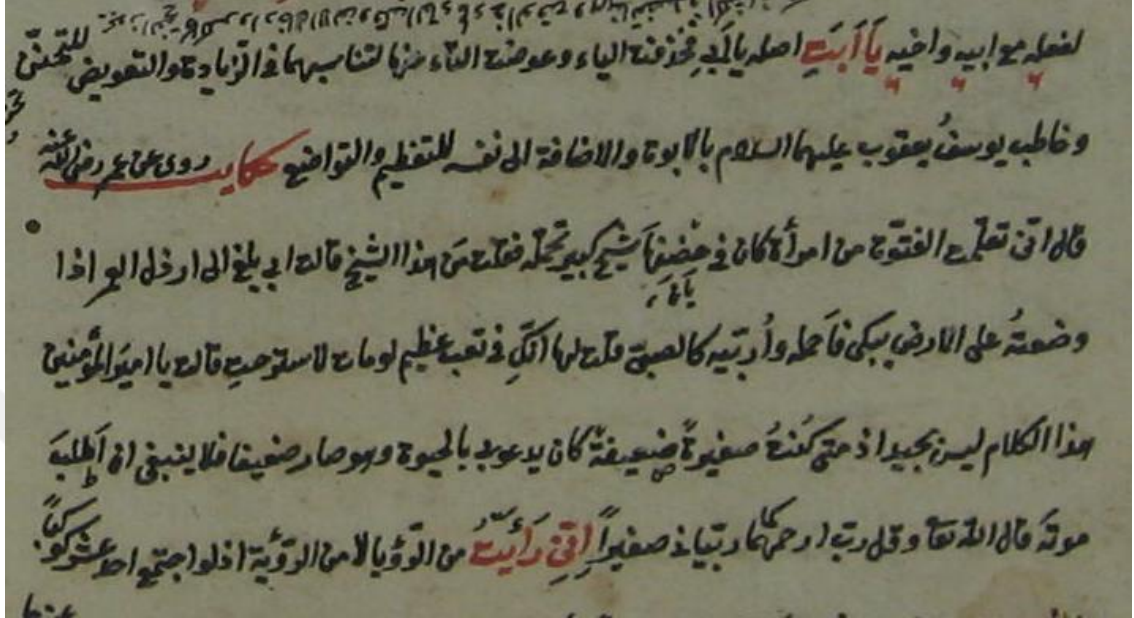 لفعله مع ابيه واخيه يَا أَبَتِ اصله يا ابي فحذفت الياء وعوضت التاء عنها لتناسبهما فى الزيادة والتعويض للتحنن
وخاطب يوسفُ يعقوب عليهما السلام بالابوة والاضافة الى نفسه للتعظيم والتواضع حكايت روى عن عمر رضى الله عنه
قال انى تعلّمت الفتوّة من امرأة كان فى حضنها شيخ كبير تحمله فقلت مَن هذا الشيخ قالت ابى بلغ الى ارذل العمر اذا
وضعتهُ على الارض يبكى فاَحمله واُربّيه كالصبىّ قلت لها انّكِ فى تعب عظيم لو مات لاسترحتِ قالت يا اميرَ المؤمنين
هذا الكلام ليس بجيد اذ متى كُنتُ صغيرةً ضعيفةً كان يدعو لى بالحيوة وهو صار ضعيفا فلا ينبغى ان اَطلبَ
موتَه قال الله تعا وقل رب ارحمهما كما ربيانى صغيراً اِنِّى رَأَيْتُ من الرّؤيا لا من الرّؤية اذ لو اجتمع احد عشر كوكباً